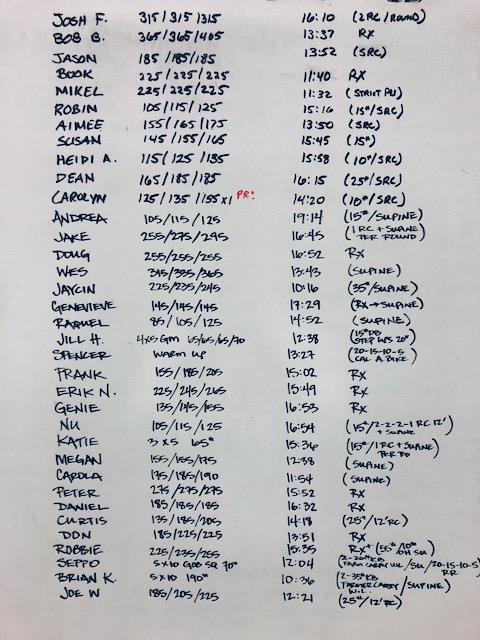 JOSH F. 315/315/315 16:10 (2RC/ROUND)
BOB B. 365/365/405 13:37 RX
JASON 185/185/185 13:52 (SRC)
BOOK 225/225/225 11:40 RX
MIKEL 225/225/225 11:32 (STRICT PU)
ROBIN 105/115/125 15:16 (15#/SRC)
AIMEE 155/165/175 13:50 (SRC)
SUSAN 145/155/165 15:45 (15#)
HEIDI A. 115/125/135 15:58 (10#/SRC)
DEAN 165/185/185 16:15 (25#/SRC)
CAROLYN 125/135/155x1 PR! 14:20 (10#/SRC)
ANDREA 105/115/125 19:14 (15#/SUPINE)
JAKE 255/275/295 16:45 (1RC + SUPINE PER ROUND)
DOUG 255/255/255 16:52 RX
WES 345/355/365 13:43 (SUPINE)
JAYCIN 225/235/245 10:16 (35#/SUPINE)
GENEVIEVE 145/145/145 17:29 (RX→SUPINE)
RAQUEL 85/105/125 14:52 (SUPINE)
JILL H. 4x5 GM 65/65/65/70 12:38 (15# DB STEP UPS 20")
SPENCER WARM UP 13:27 (20-15-10-5 CAL A.BIKE)
FRANK 155/185/205 15:02 RX
ERIK N. 225/245/265 15:49 RX
GENIE 135/145/155 16:53 RX
NU 105/115/125 16:54 (15#/2-2-2-1 RC 12' + SUPINE)
KATIE 3x5 65# 15:36 (15#/1RC + SUPINE PER RD)
MEGAN 155/155/175 12:38 (SUPINE)
CAROLA 175/185/190 11:54 (SUPINE)
PETER 275/275/275 15:52 RX
DANIEL 185/185/205 16:32 RX
CURTIS 135/185/205 14:18 (25#/12'RC)
DON 185/225/225 13:51 RX
ROBBIE 225/235/255 15:35 RX+ (55#/10# SU)
SEPPO 5x10 GOB SQ 70# 12:04 (2-20#KB FARM CARRY WL/SU/20-15-10-5 RR
BRIAN K. 5x10 190# 10:36 (2-35#KB FARMER CARRY/SUPINE) W.L.
JOE W 185/205/225 12:21 (25#/12'RC)